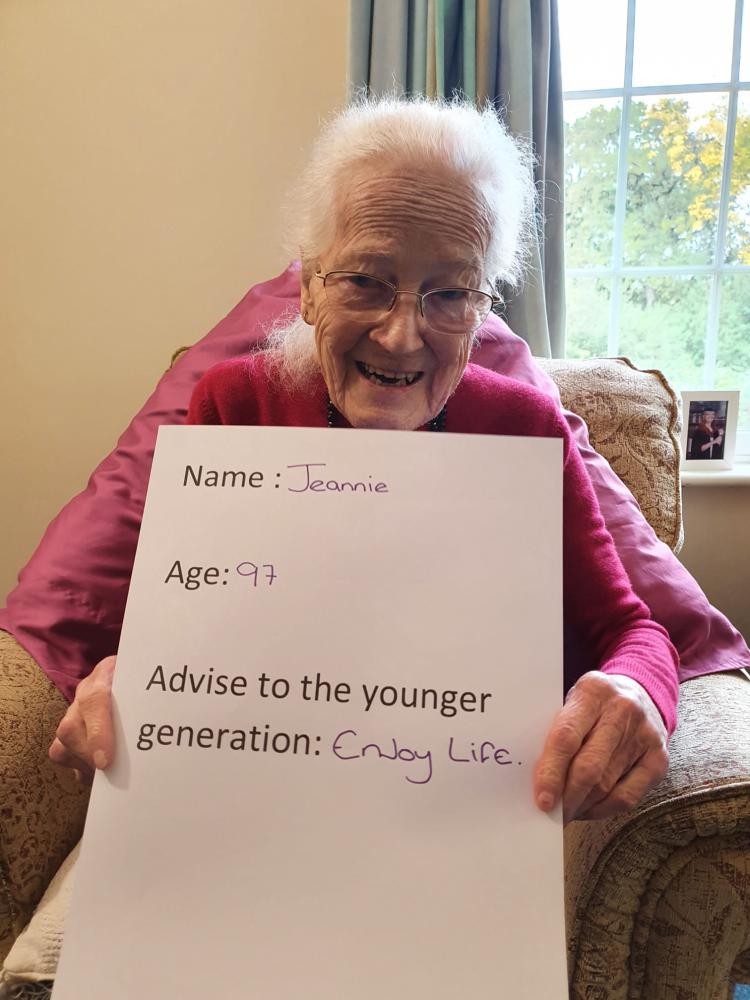 Name : Jeannie
Age: 97
Advise to the younger
generation: Enjoy Life.